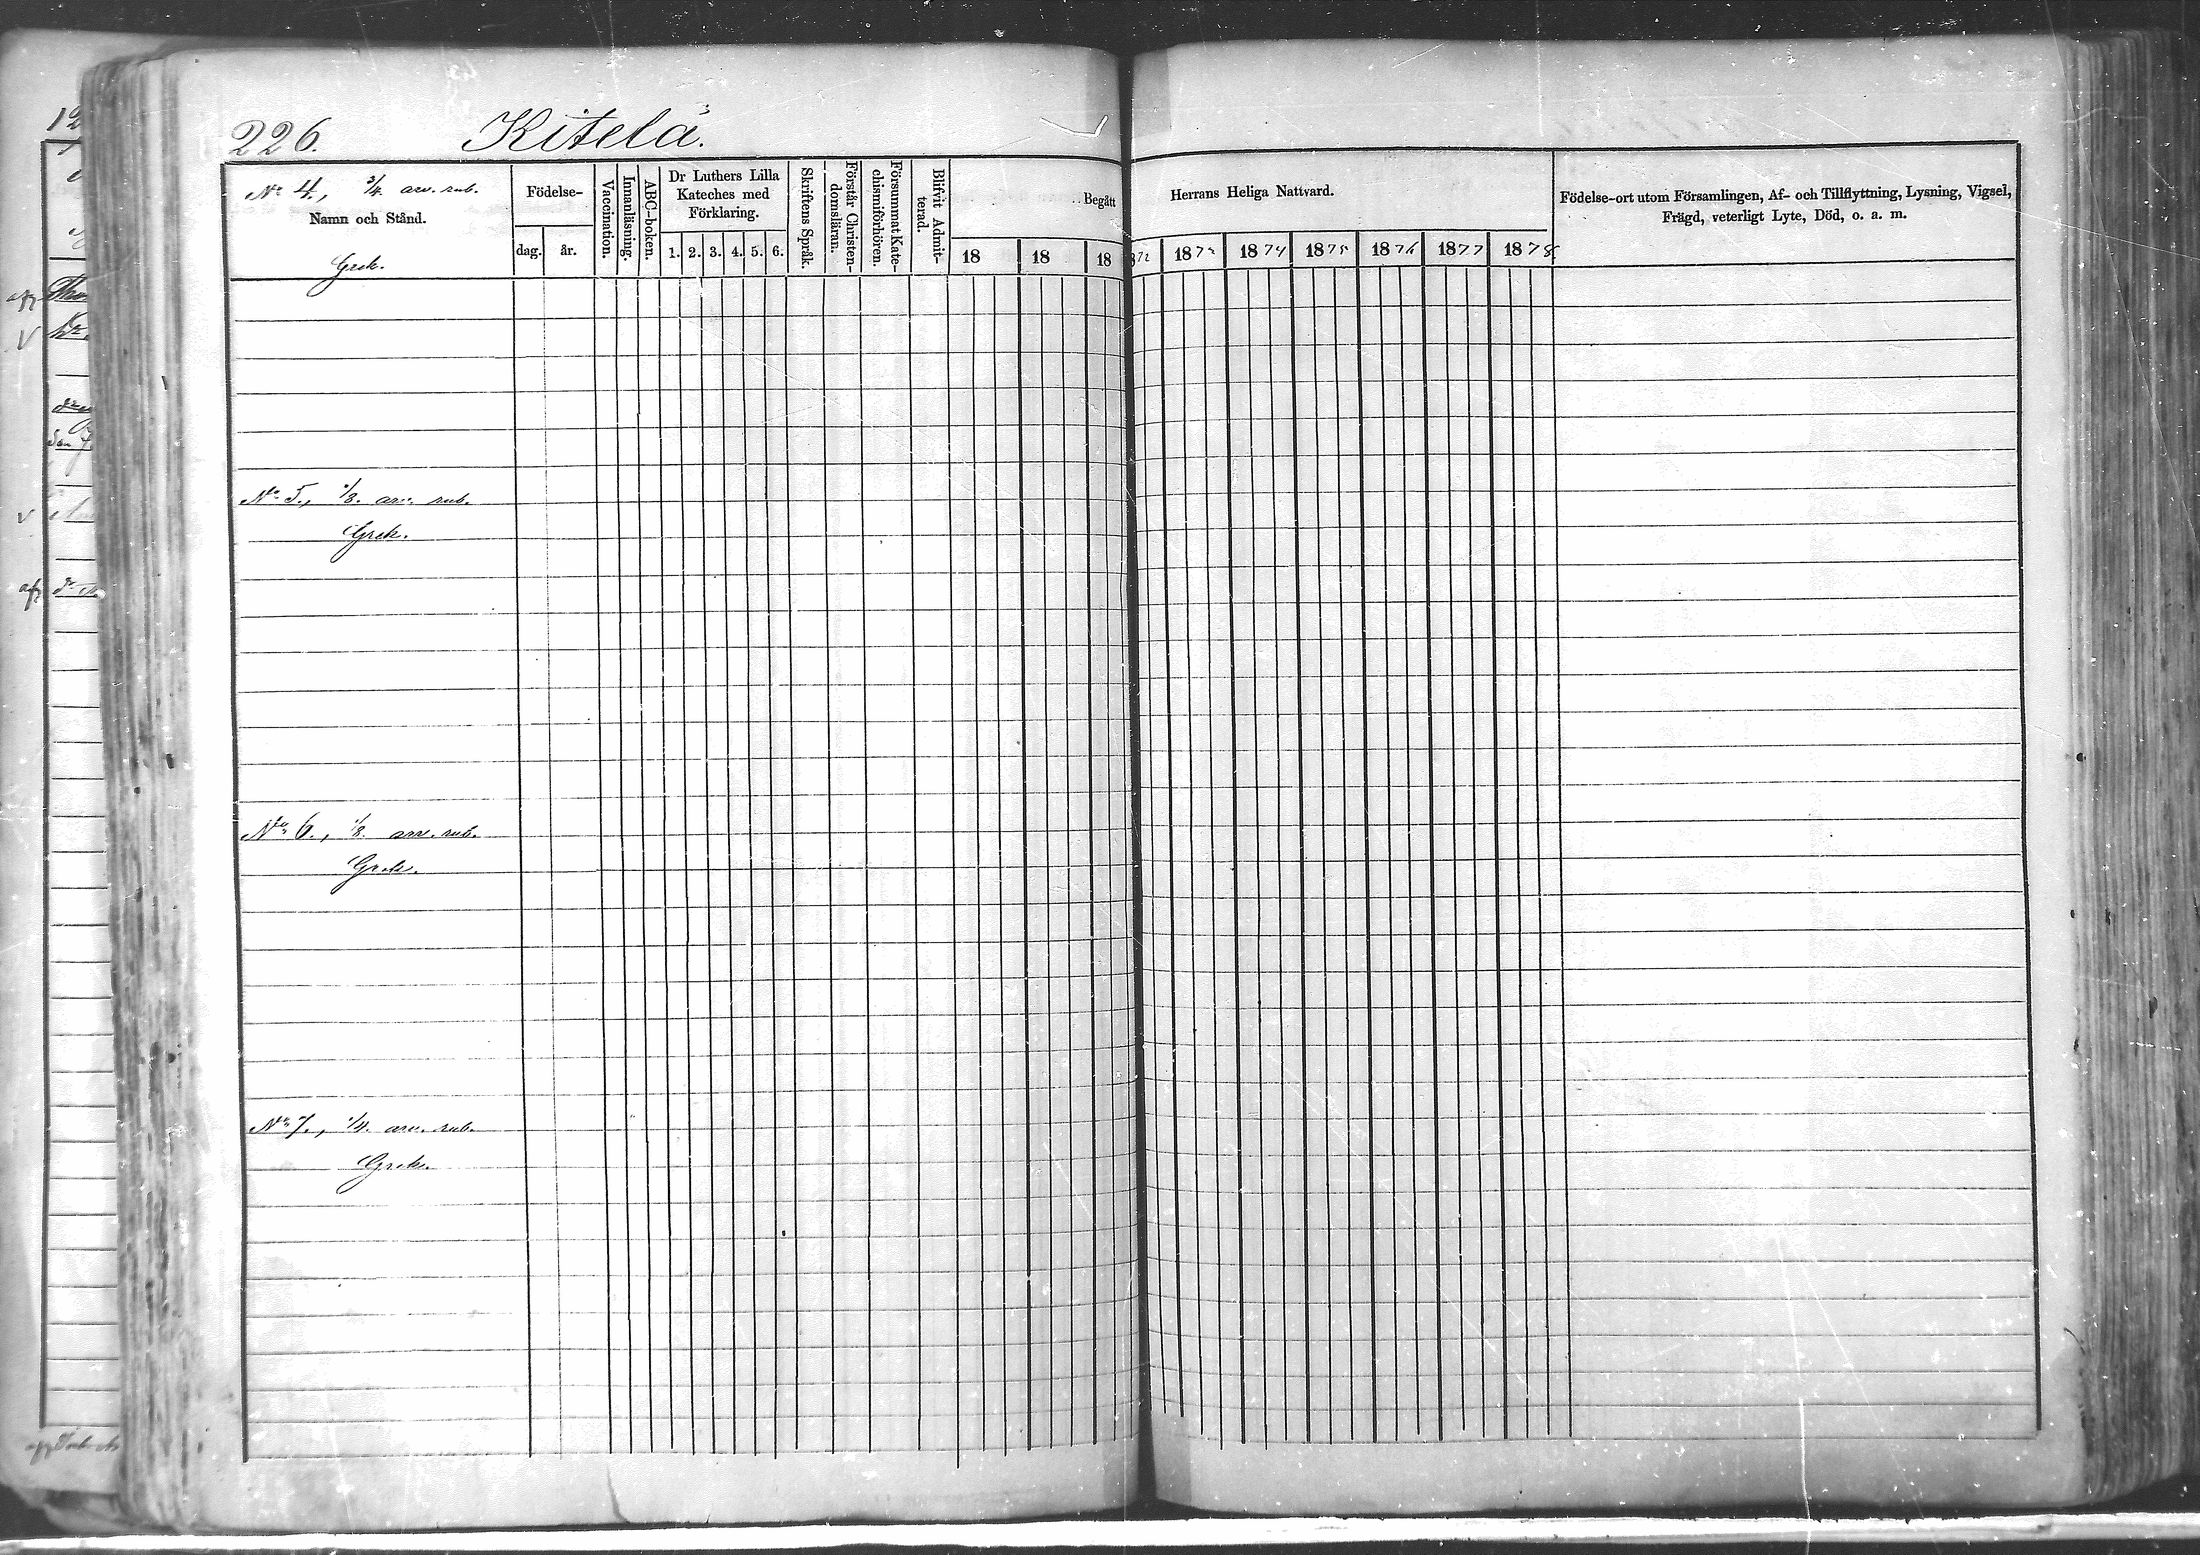 226. Kitelä.
No 4., 3/4. arv. rub.
Namn och Stånd.
Grek.
Födelse-
dag. år.
Vaccination.
Innanläsning.
ABC-boken.
Dr Luthers Lilla
Kateches med
Förklaring.
1. 2. 3. 4. 5. 6.
Skriftens Språk.
Förstår Christen-
domsläran.
Försummat Kate-
chismiförhören.
Blifvit Admit-
terad.
Begått Herrans Heliga Nattvard.
18 18 18 72 1873 1874 1875 1876 1877 1878
Födelse-ort utom Församlingen, Af- och Tillflyttning, Lysning, Vigsel,
Frägd, veterligt Lyte, Död, o. a. m.
No 5., 1/8. arv. rub.
Grek.
No 6., 1/8. arv. rub.
Grek.
No 7., 1/4. arv. rub.
Grek.